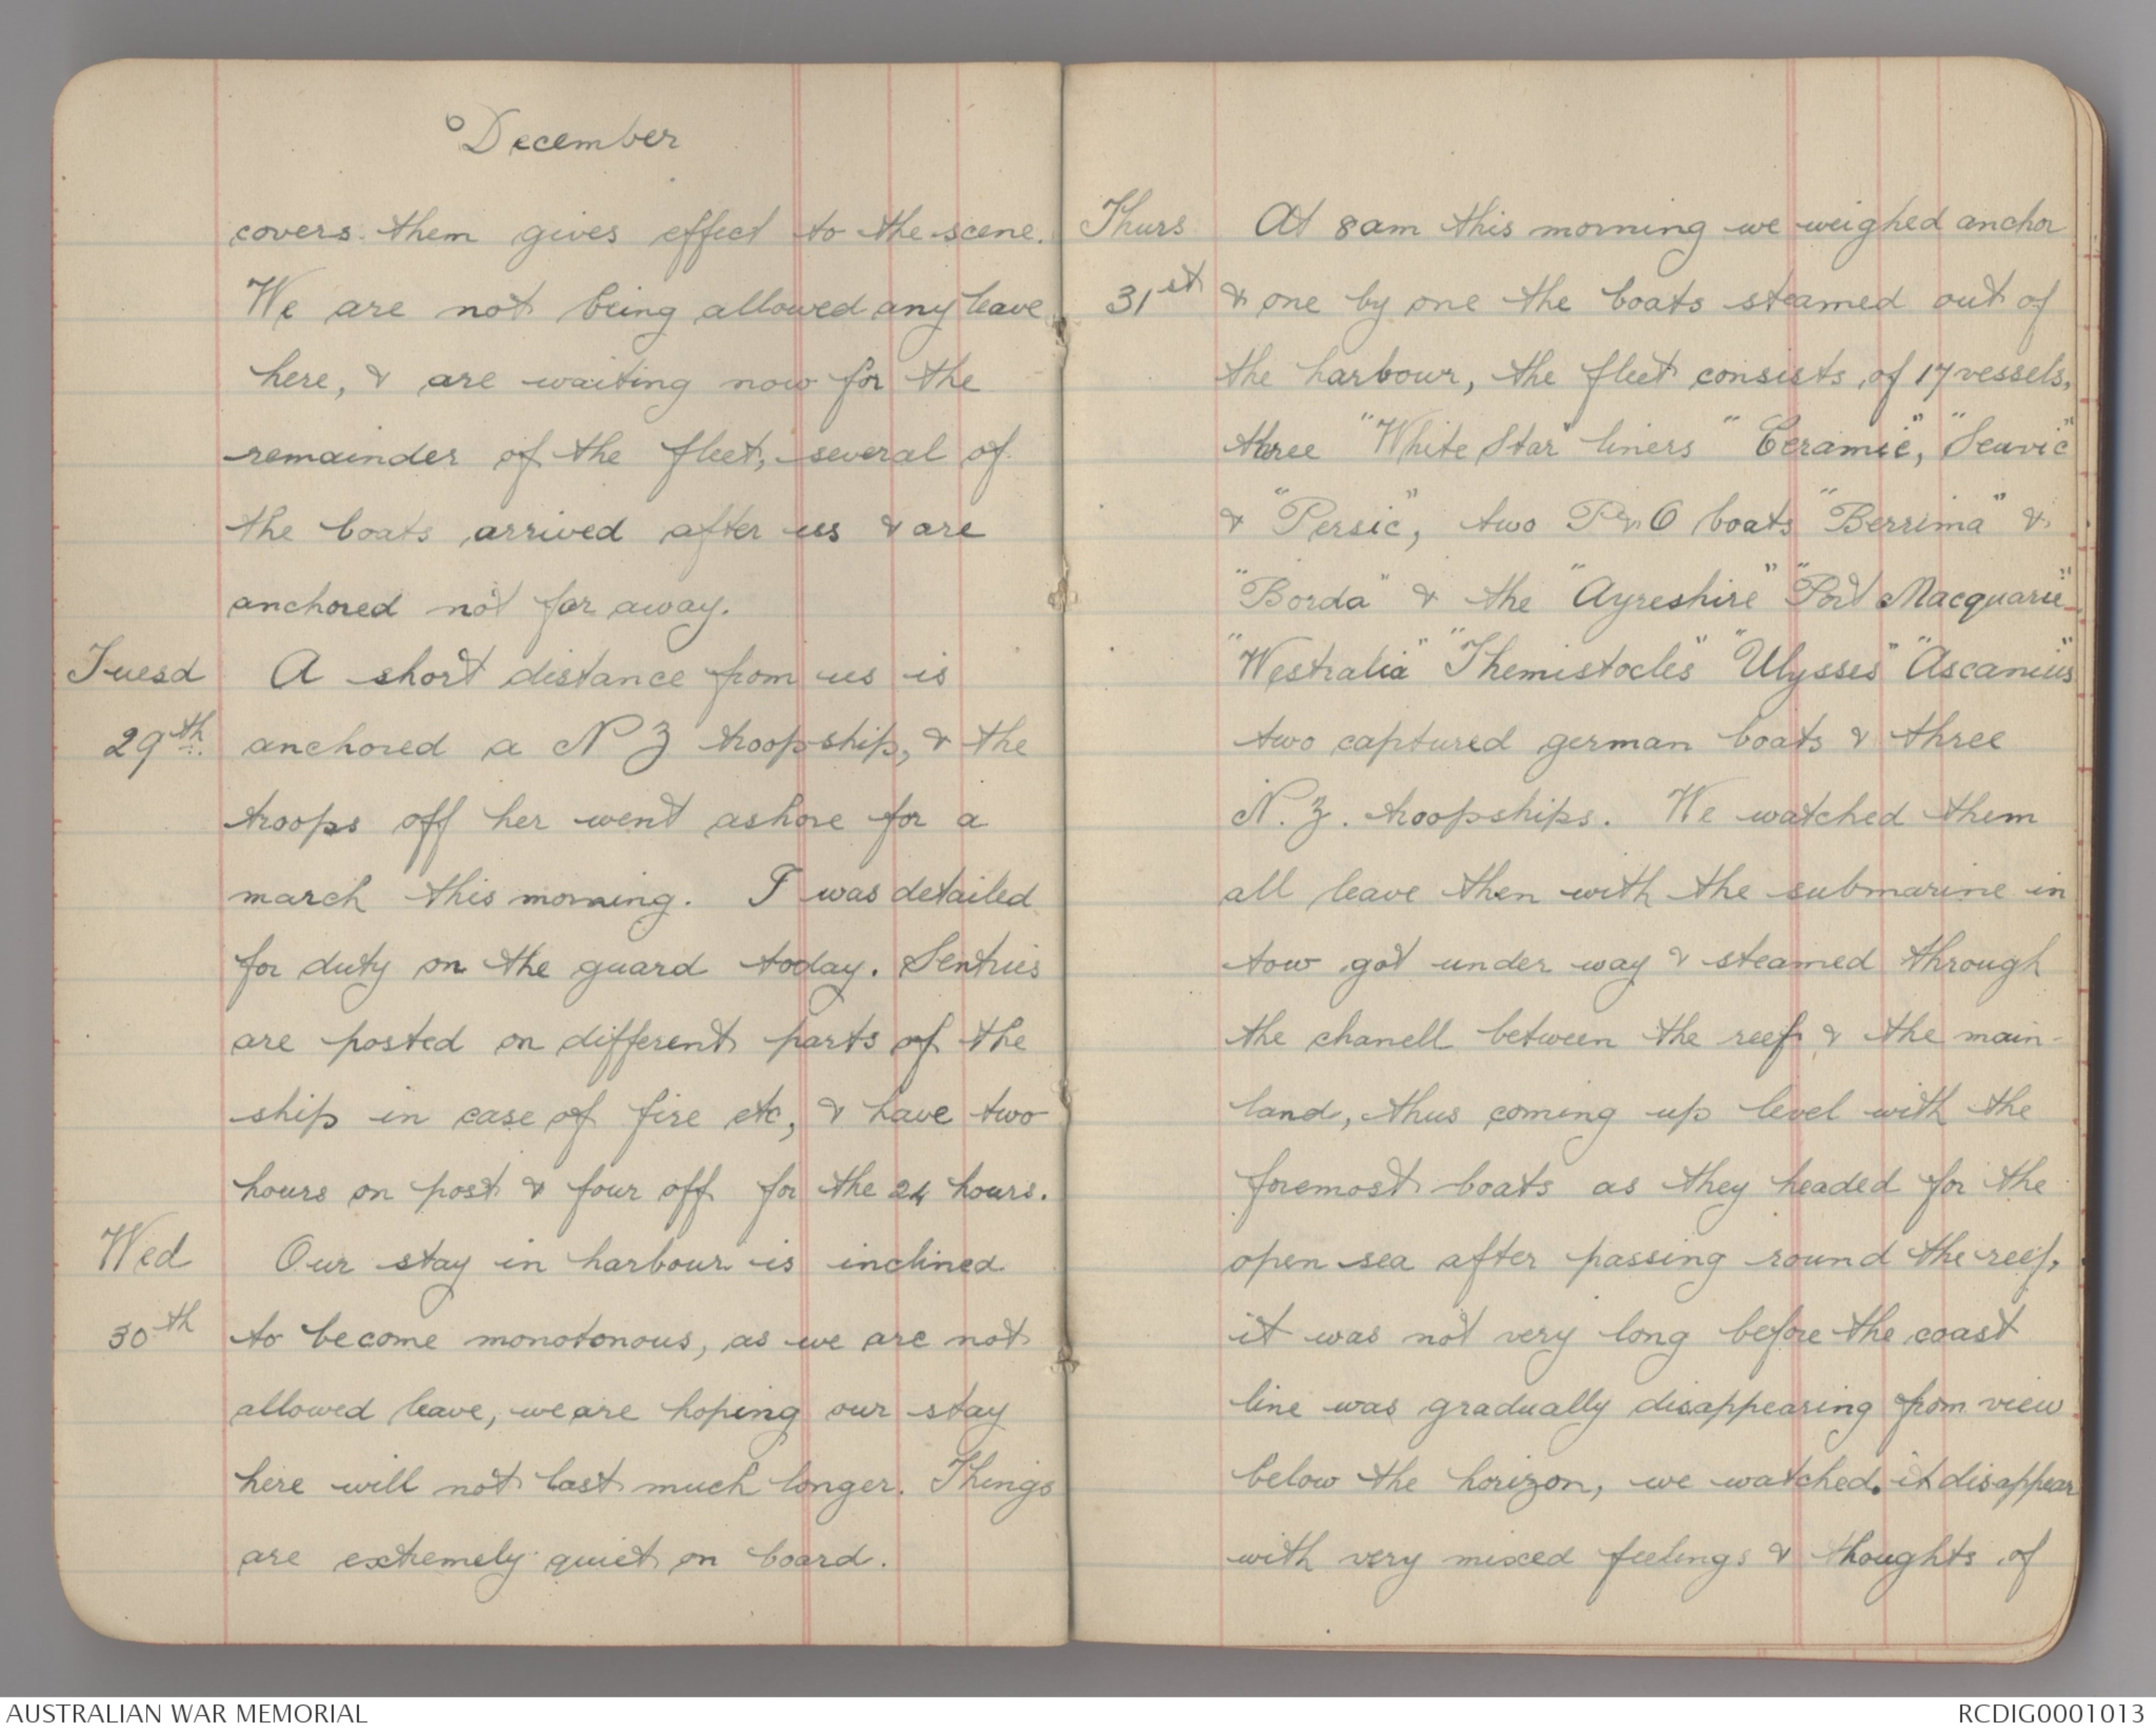 December
covers them gives effect to the scene.
We are not being allowed any leave
here, & are waiting now for the
remainder of the fleet, several of
the boats arrived after us & are
anchored not far away.
Tuesd A short distance from us is
29th anchored a N Z troopship, & the
troops off her went ashore for a
march this morning. I was detailed
for duty on the guard today. Sentries
are posted on different parts of the
ship in case of fire etc, & have two
hours on post & four off for the 24 hours.
Wed Our stay in harbour is inclined
30th to become monotonous, as we are not
allowed leave, we are hoping our stay
here will not last much longer. Things
are extremely quiet on board.
Thurs At 8am this morning we weighed anchor
31st & one by one the boats steamed out of
the harbour, the fleet consists of 17 vessels,
three "White Star" liners "Ceramic", "Seuvic"
& "Persic", two P & O boats "Berrima" &
"Borda" & the "Ayreshire" "Port Macquarie"
"Westralia" "Themistocles" "Ulysses" "Ascanius"
two captured german boats & three
N.Z. troopships. We watched them
all leave then with the submarine in
tow got under way & steamed through
the chanell between the reef & the main-
land, thus coming up level with the
foremost boats as they headed for the
open sea after passing round the reef,
it was not very long before the coast
line was gradually disappearing from view
below the horizon, we watched it disappear
with very mixed feelings & thoughts of
AUSTRALIAN WAR MEMORIAL
RCDIG0001013